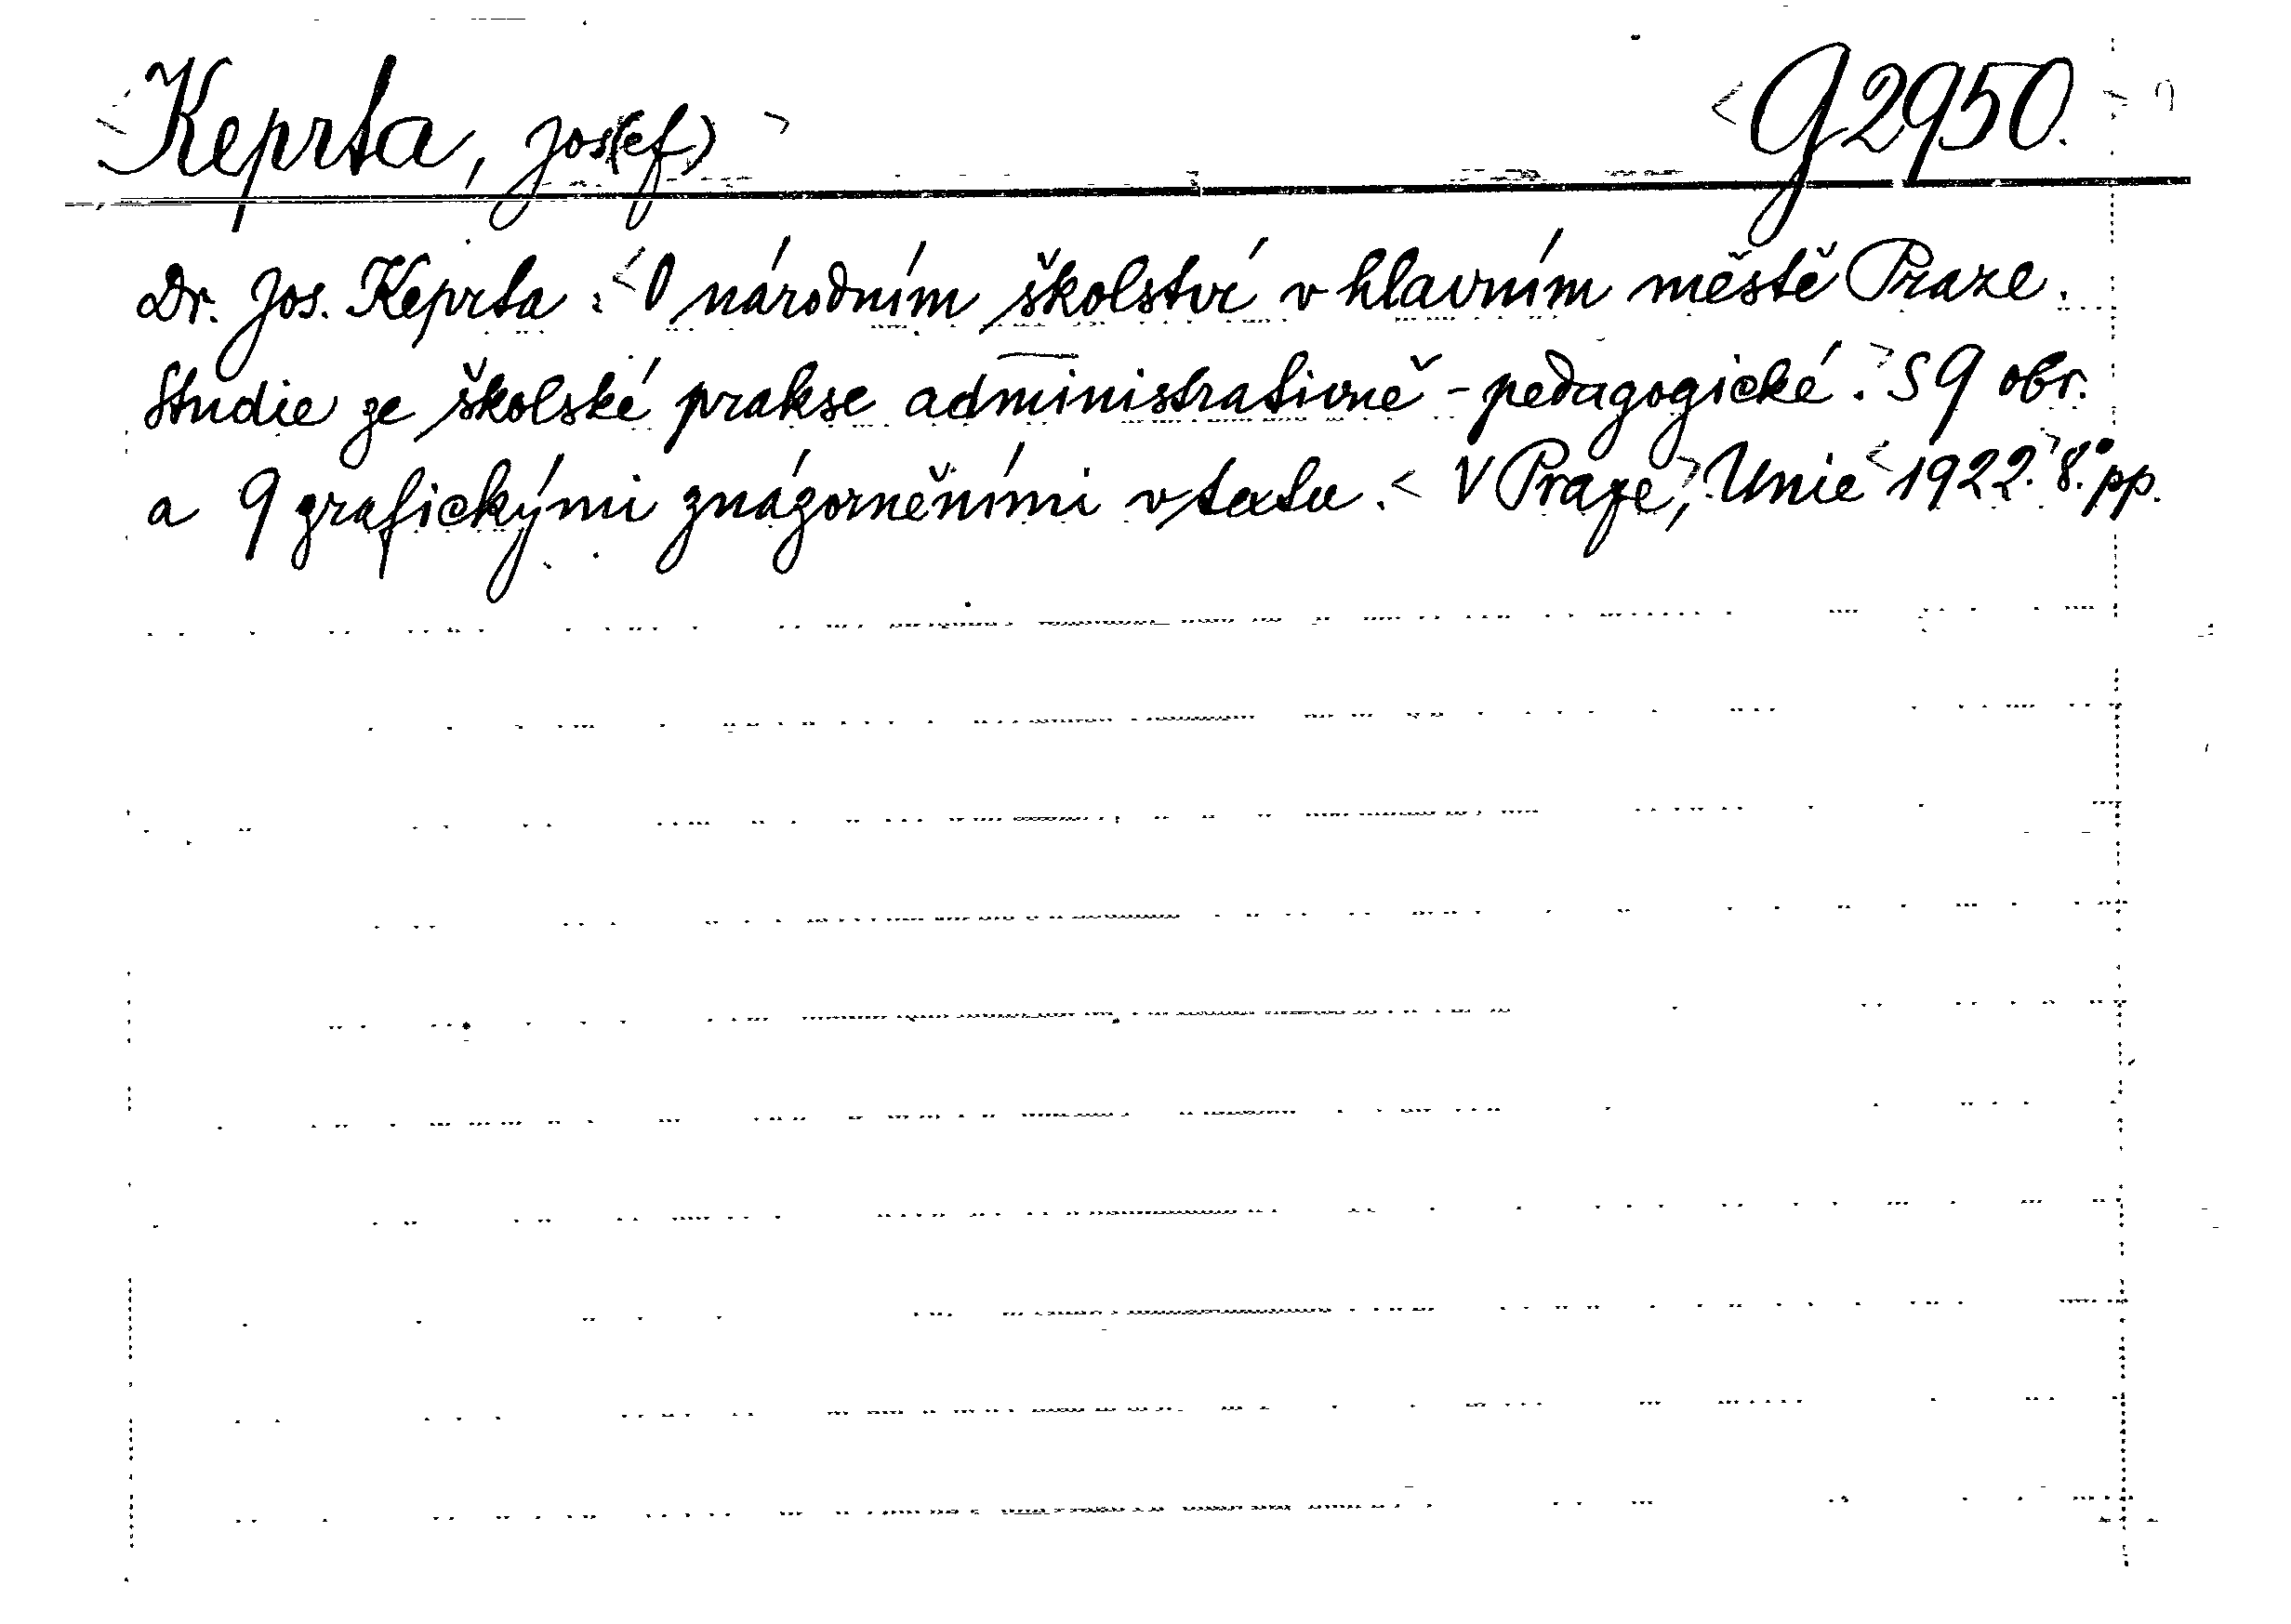 Keprta, Jos(ef) G 2950.
Dr. Jos. Keprta: O národním školství v hlavním městě Praze.
Studie ze školské prakse administrativně-pedagogické. S 9 obr.
a 9 grafickými znázorněními v textu. V Praze, Unie 1922. 8° pp.